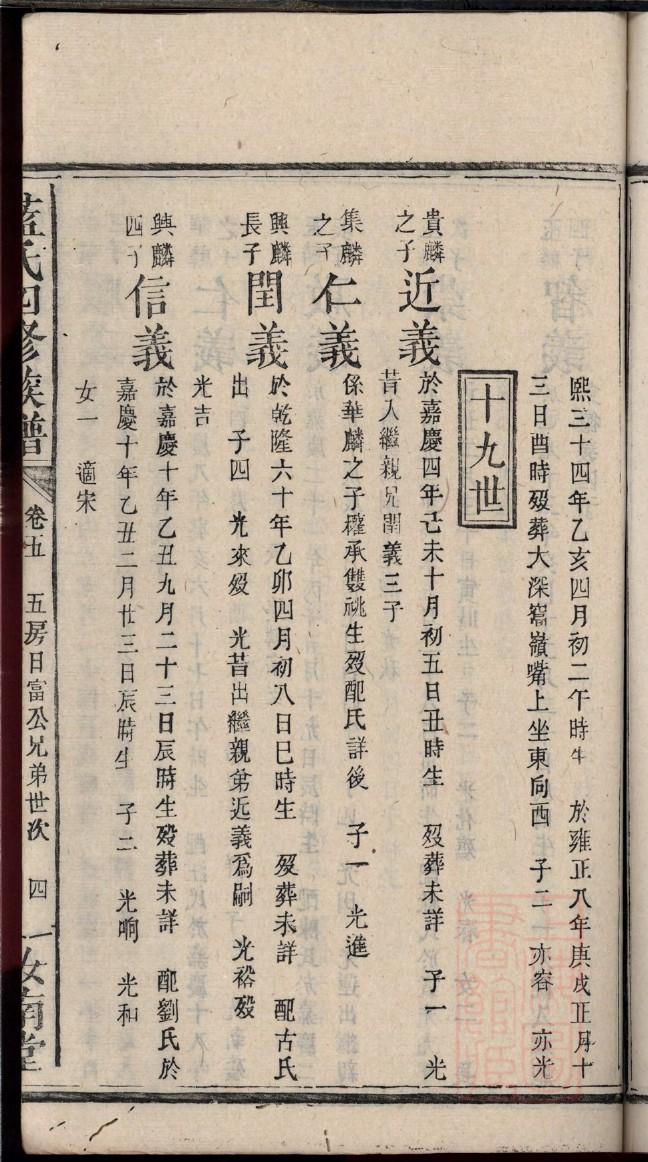 熙三十四年乙亥四月初二午時生 於雍正八年庚戌正月十
三日酉時歿葬大深窩嶺嘴上坐東向西 子二 亦容 亦光
十九世
貴麟之子 近義 於嘉慶四年己未十月初五日丑時生 歿葬未詳 子一 光
昔入繼親兄閏義三子
集麟之子 仁義 係華麟之子權承雙祧生歿配氏詳後 子一 光進
興麟長子 閏義 於乾隆六十年乙卯四月初八日巳時生 歿葬未詳 配古氏
出 子四 光來歿 光昔出繼親弟近義爲嗣 光裕歿
光吉
興麟四子 信義 於嘉慶十年乙丑九月二十三日辰時生歿葬未詳 配劉氏於
嘉慶十年乙丑二月廿三日辰時生 子二 光啊 光和
女一 適宋
藍氏四修族譜 卷五 五房日富公兄弟世次 四 汝南堂